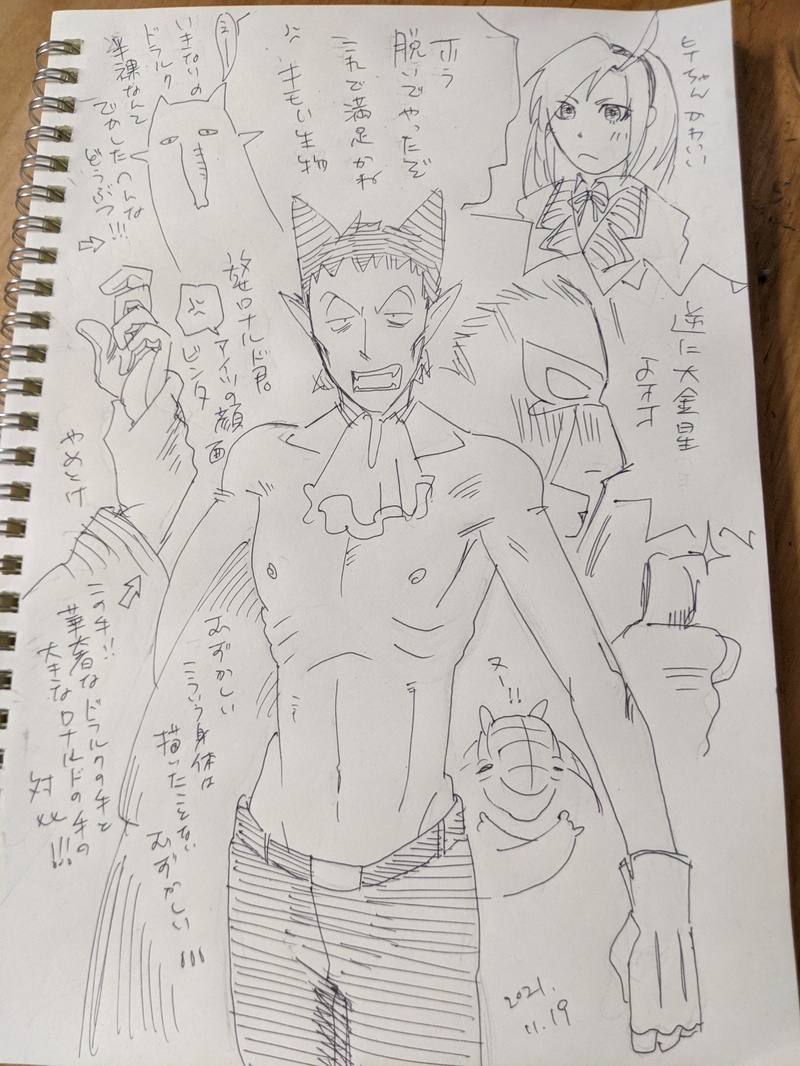 ヒナちゃん かわいい
ホラ
脱いでやったぞ
これで満足かね
キモい生物
ヌー
いきなりの
ドラルク
半裸なんて
でかした へんな
どうぶつ!!!
逆に大金星
よホホ
ロナルド君。
アイツの顔面
ビンタ
やめとけ
この手!!
華奢なドラルクの手と
大きなロナルドの手の
対比!!!
むずかしい
こういう身体は
描いたことない
むずかしい!!!
ヌー!!
2021.
11.19